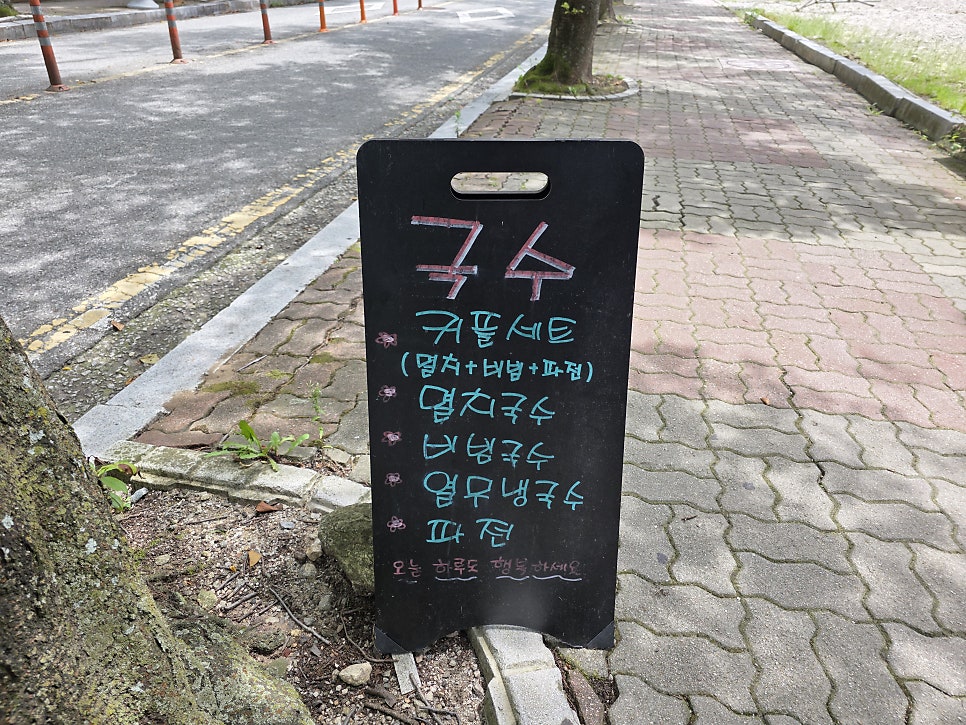 국수
커플세트
(멸치+비빔+파전)
멸치국수
비빔국수
국수
파전
오늘 하루도 행복하세요